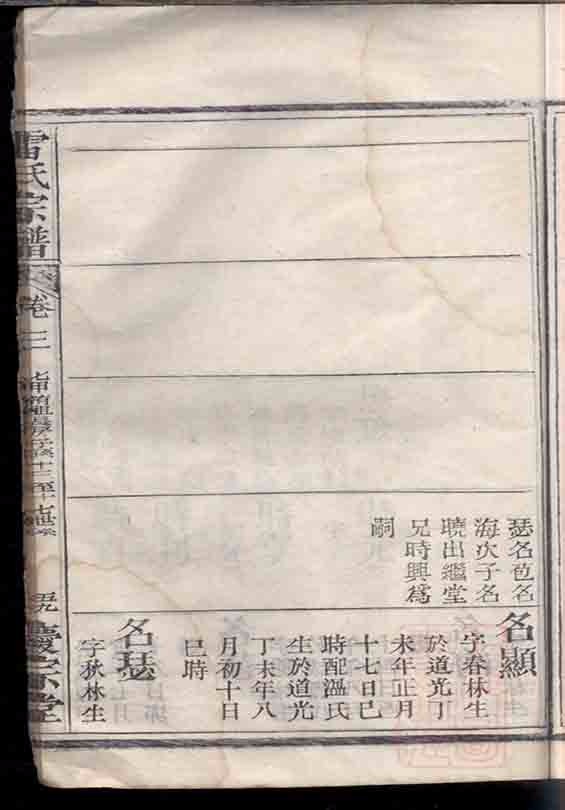 瑟名芭名
海次子名
曉出繼堂
兄時興爲
嗣
名顯
字春林生
於道光丁
未年正月
十七日己
時配溫氏
生於道光
丁未年八
月初十日
巳時
名瑟
字狄林生
氏宗譜
卷三
慶宗堂